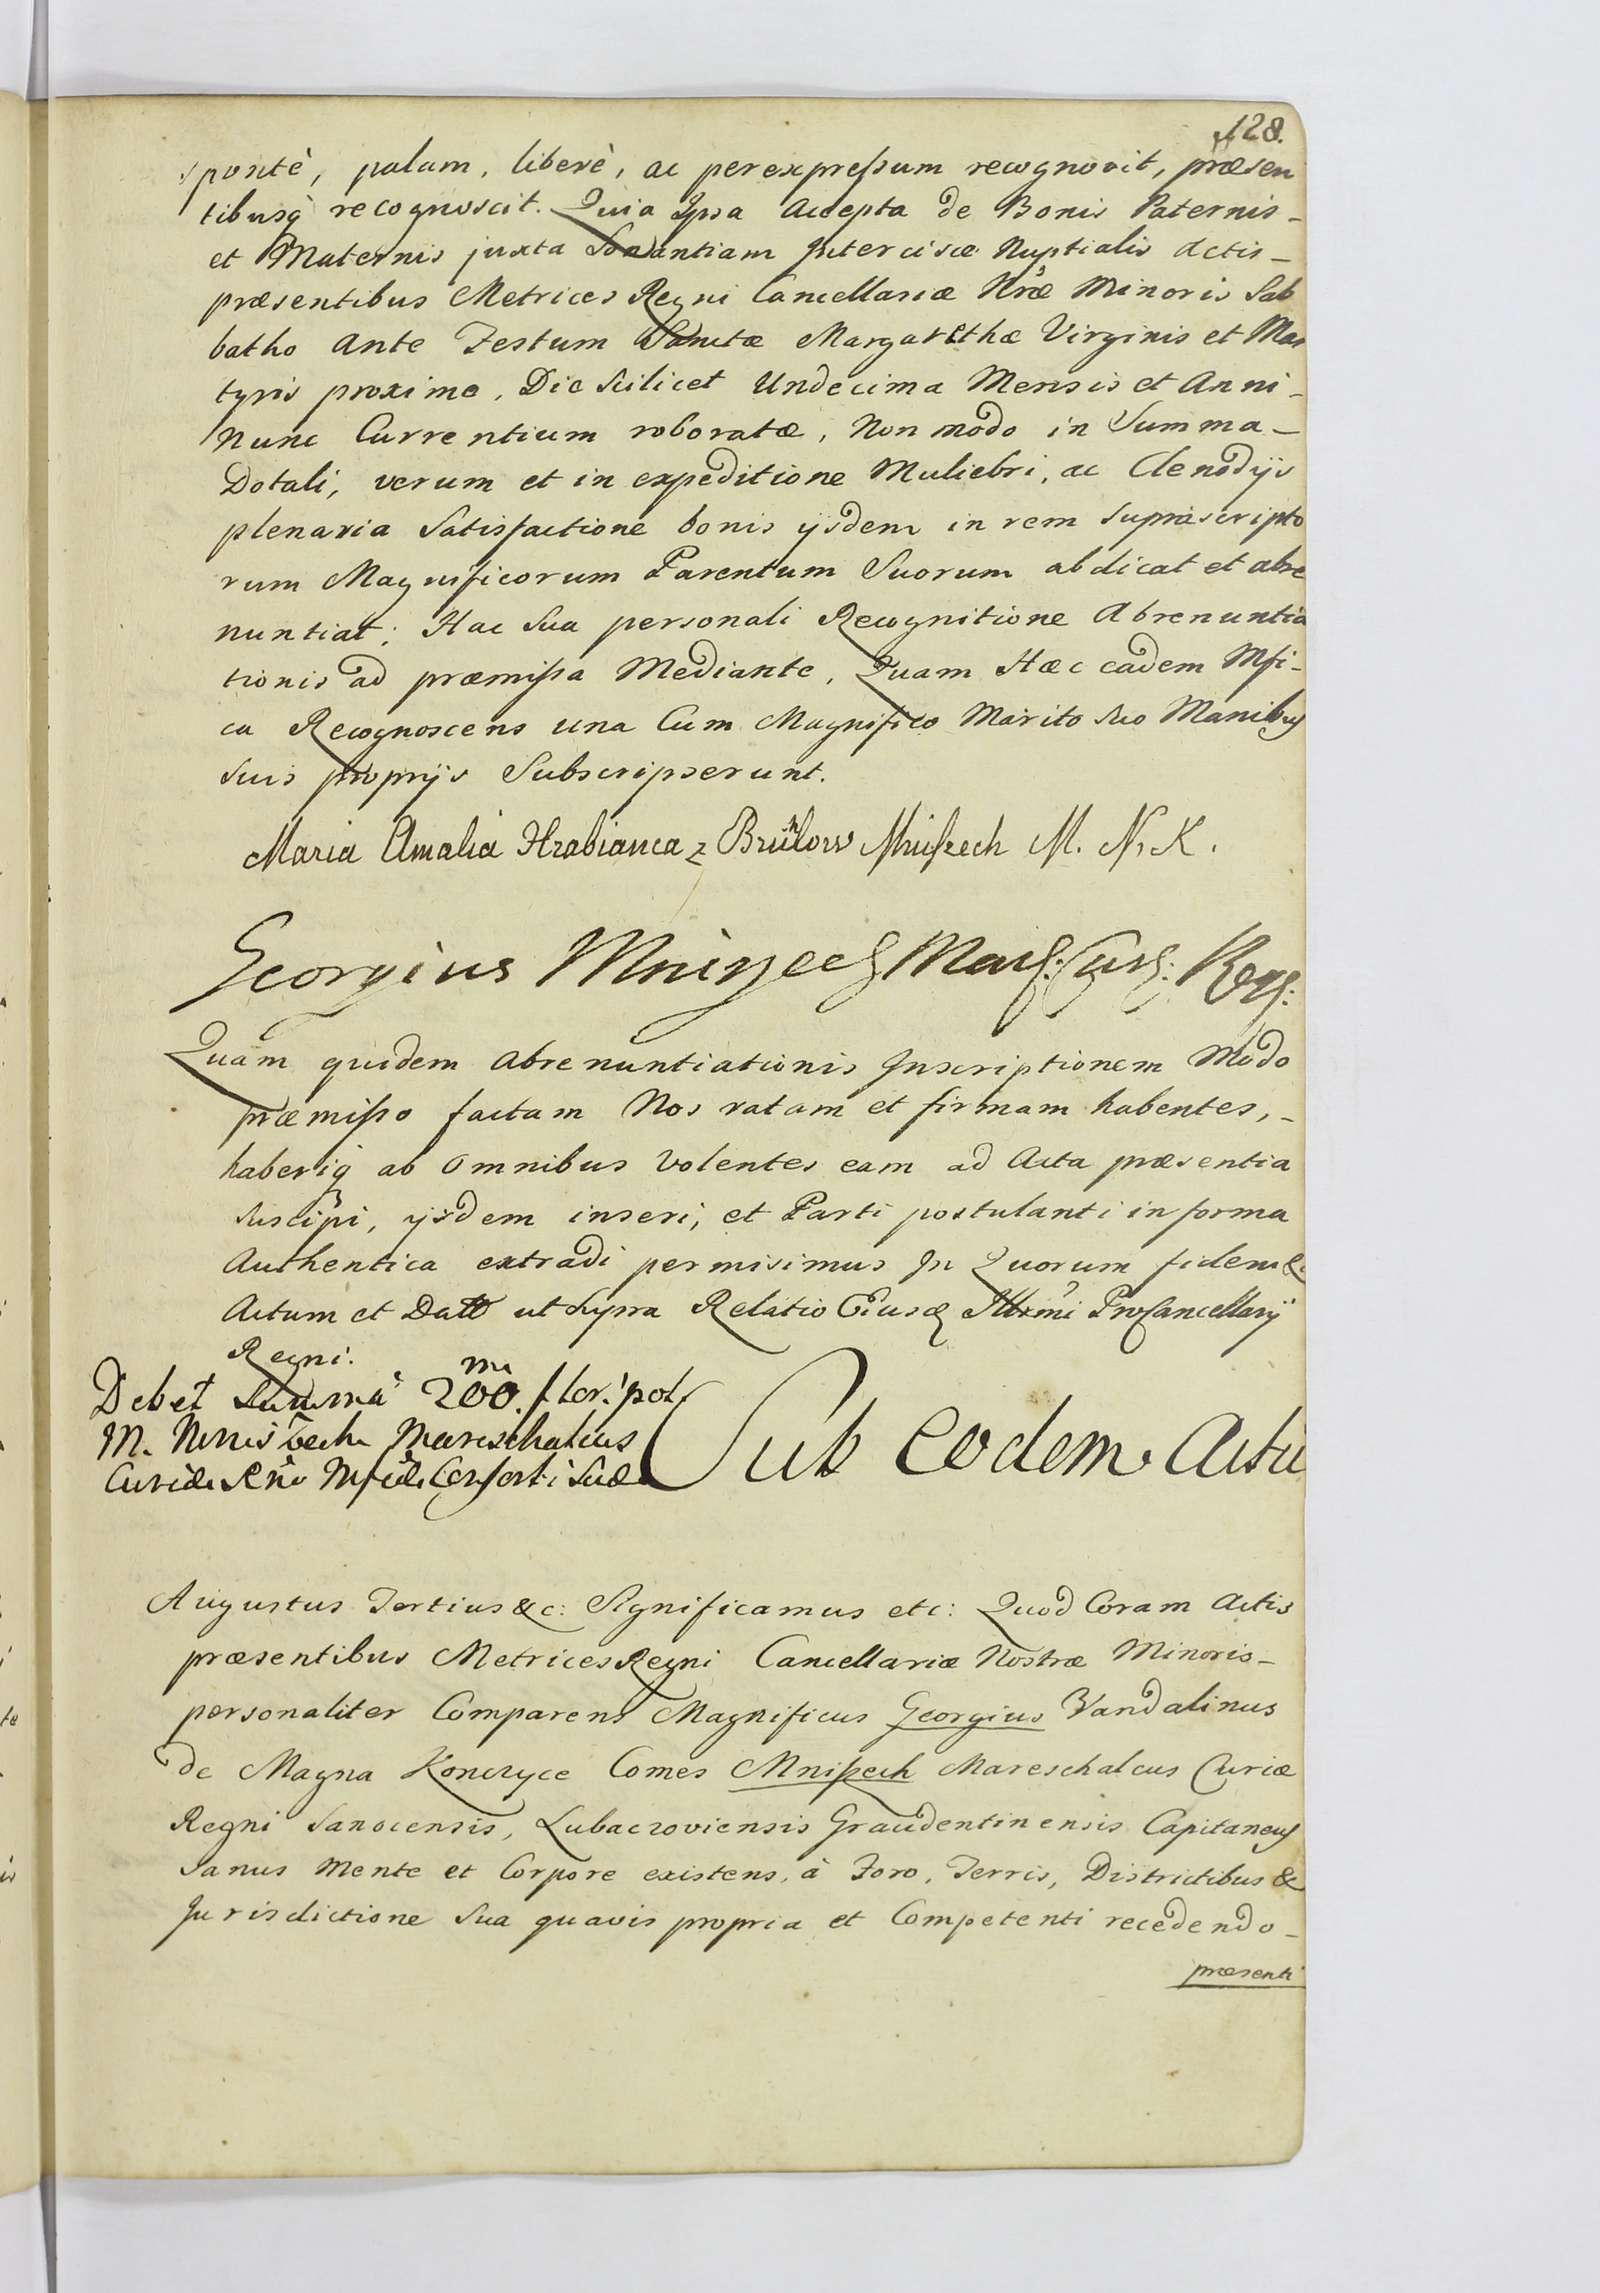 128.
sponte, palam, liberè, ac per expressum recognovit, præsen
tibusq recognoscit. Quia Ipsa Accepta de Bonis Paternis -
et Maternis juxta Sonantiam Intercisæ Nuptialis Actis -
præsentibus Metrices Regni Cancellariæ Nræ Minoris Sab
batho Ante Festum Sanctæ Margarethæ Virginis et Mar
tyris proximo, Die Scilicet Undecima Mensis et Anni -
Nunc Currentium roboratæ, Non modo in Summa -
Dotali, verum et in expeditione Muliebri, ac Clenodijs
plenaria Satisfactione bonis ijsdem in rem suprascripto
rum Magnificorum Parentum Suorum abdicat et abre
nuntiat; Hac Sua personali Recognitione Abrenuntia
tionis ad præmissa Mediante, Quam Hæc eadem Mfi-
ca Recognoscens una Cum Magnifico Marito Suo Manibus
Suis proprijs Subscripserunt.
Maria Amalia Hrabianca z Brühlow Mniszech M. N. K.
Georgius Mniszech Mars: Cur: Reg:
Quam quidem Abrenuntiationis Inscriptionem Modo
præmisso factam Nos ratam et firmam habentes, -
haberiq ab Omnibus Volentes eam ad Acta præsentia
Suscipi, ijsdem inseri, et Parti postulanti in forma
Authentica extradi permisimus In Quorum fidem &
Actum et Datt ut Supra Relatio Eiusd Illxmi ProCancellarij
Regni.
Debet Summa 200. flor: pol
M. Mniszech Mareschalcus
Curiæ Rñi Mficæ Consorti Suæ
Sub eodem Actu
Augustus Tertius &c: Significamus etc: Quod Coram Actis
præsentibus Metrices Regni Cancellariæ Nostræ Minoris -
personaliter Comparens Magnificus Georgius Vandalinus
de Magna Konczyce Comes Mniszech Mareschalcus Curiæ
Regni Sanocensis, Lubaczoviensis Graudentinensis Capitaneus
Sanus Mente et Corpore existens, à Foro, Terris, Districtibus &
Jurisdictione Sua quavis propria et Competenti recedendo -
præsenti